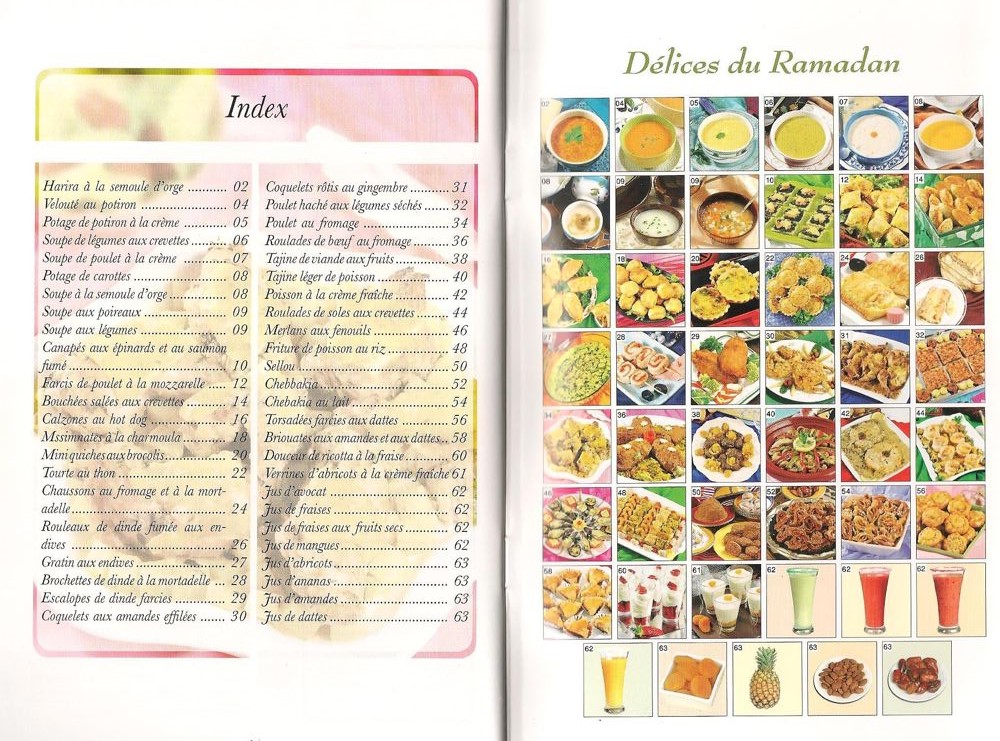 Index
Harira à la semoule d'orge ........... 02
Velouté au potiron ........................ 04
Potage de potiron à la crème ....... 05
Soupe de légumes aux crevettes ......... 06
Soupe de poulet à la crème .......... 07
Potage de carottes ...................... 08
Soupe à la semoule d'orge .............. 08
Soupe aux poireaux ..................... 09
Soupe aux légumes ...................... 09
Canapés aux épinards et au saumon
fumé .......................................... 10
Farcis de poulet à la mozzarelle ..... 12
Bouchées salées aux crevettes .......... 14
Calzones au hot dog .................... 16
Mssimnates à la charmoula ............ 18
Mini quiches aux brocolis ............... 20
Tourte au thon ............................ 22
Chaussons au fromage et à la mort-
adelle ........................................ 24
Rouleaux de dinde fumée aux en-
dives ......................................... 26
Gratin aux endives ...................... 27
Brochettes de dinde à la mortadelle ... 28
Escalopes de dinde farcies ............. 29
Coquelets aux amandes effilées ....... 30
Coquelets rôtis au gingembre ......... 31
Poulet haché aux légumes séchés ...... 32
Poulet au fromage ....................... 34
Roulades de bœuf au fromage ........ 36
Tajine de viande aux fruits ............ 38
Tajine léger de poisson ................. 40
Poisson à la crème fraîche ............ 42
Roulades de soles aux crevettes ....... 44
Merlans aux fenouils ................... 46
Friture de poisson au riz ............... 48
Sellou ........................................ 50
Chebbakia .................................. 52
Chebakia au lait ......................... 54
Torsadées farcies aux dattes ........... 56
Briouates aux amandes et aux dattes .. 58
Douceur de ricotta à la fraise ......... 60
Verrines d'abricots à la crème fraîche 61
Jus d'avocat ............................... 62
Jus de fraises .............................. 62
Jus de fraises aux fruits secs .......... 62
Jus de mangues ........................... 62
Jus d'abricots .............................. 63
Jus d'ananas ............................... 63
Jus d'amandes ............................ 63
Jus de dattes ............................... 63
Délices du Ramadan
02 04 05 06 07 08
08 09 09 10 12 14
16 18 20 22 24 26
27 28 29 30 31 32
34 36 38 40 42 44
46 48 50 52 54 56
58 60 61 62 62 62
62 63 63 63 63